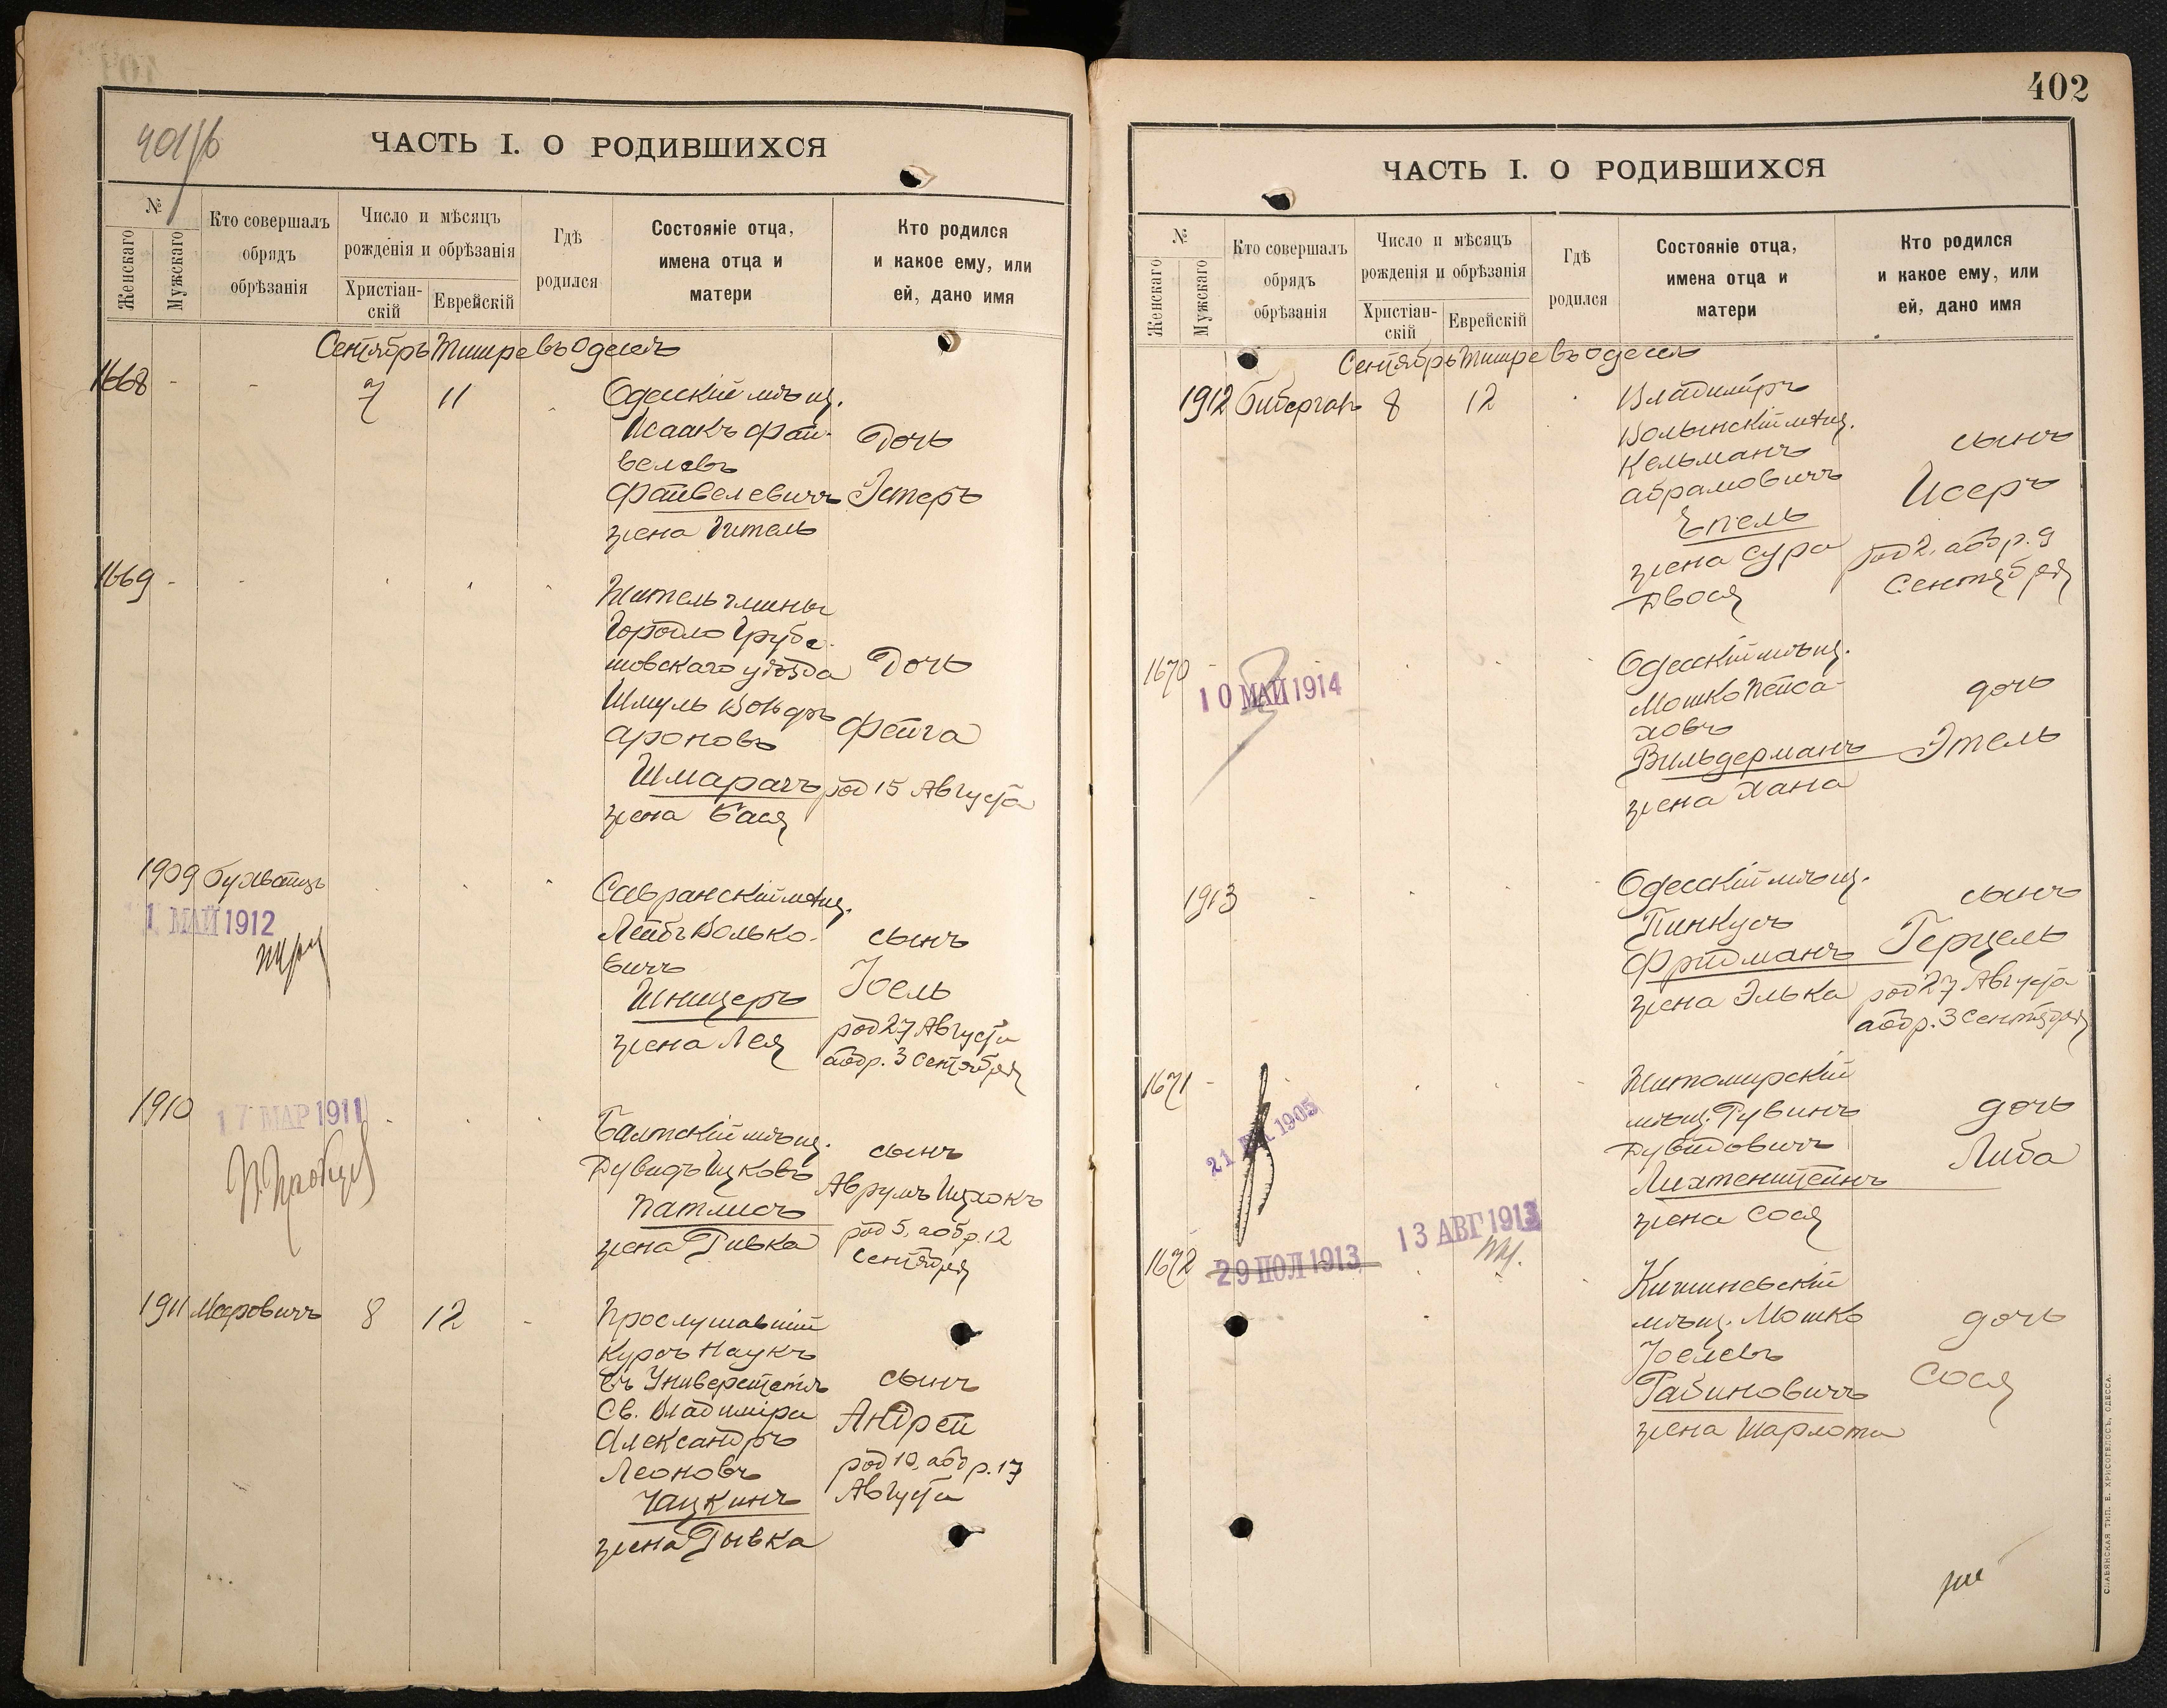 ЧАСТЬ I. О РОДИВШИХСЯ
№
Женскаго
Мужскаго
Кто совершалъ обрядъ обрѣзанія
Число и мѣсяцъ рожденія и обрѣзанія
Христіан-скій
Еврейскій
Гдѣ родился
Состояніе отца, имена отца и матери
Кто родился и какое ему, или ей, дано имя
Сентябрь Тишре въ Одессѣ
1668 - - 7 11
Одесскій мѣщ.
Исаакъ Фай-
велевъ
Файвелевичъ
жена Гитель
Дочь
Эстеръ
1669 - -
Житель гмины
Городло Грубе-
шовскаго уѣзда
Шмуль
Ароновъ
Шмарагъ
жена Бася
Дочь
Фейга
род 15 Августа
1909
1 МАЙ 1912
Савранскій мѣщ.
Лейбъ Волько-
вичъ
Шницеръ
жена Лея
сынъ
Іоель
род 27 Августа
аобр. 3 Сентября
1910
17 МАР 1911
Балтскій мѣщ.
Дувидъ Ицковъ
Патлисъ
жена Ривка
сынъ
Аврумъ Ицхокъ
род 5, аобр. 12
Сентября
1911 Меровичъ 8 12 -
Прослушавшій
Курсъ Наукъ
въ Университетѣ
Св. Владиміра
Александръ
Леоновъ
Чацкинъ
жена Рывка
сынъ
Андрей
род 10, аобр. 17
Августа
402
ЧАСТЬ I. О РОДИВШИХСЯ
№
Женскаго
Мужскаго
Кто совершалъ обрядъ обрѣзанія
Число и мѣсяцъ рожденія и обрѣзанія
Христіан-скій
Еврейскій
Гдѣ родился
Состояніе отца, имена отца и матери
Кто родился и какое ему, или ей, дано имя
Сентябрь Тишре въ Одессѣ
1912 Бибергалъ 8 12
Владиміръ
Волынскій мѣщ.
Кельманъ
Абрамовичъ
Эпель
жена Сура
Двося
сынъ
Исеръ
род 2, аобр. 9
Сентября
1670 -
10 МАЙ 1914
Одесскій мѣщ.
Мошко Пейса-
ховъ
Вильдерманъ
жена Хана
дочь
Этель
1913
Одесскій мѣщ.
Пинкусъ
Фридманъ
жена Элька
сынъ
Герцель
род 27 Августа
аобр. 3 Сентября
1671 -
Житомирскій
мѣщ. Рувинъ
Дувидовичъ
Лихтенштейнъ
жена Сося
дочь
Либа
1672
29 ИЮЛ 1913
13 АВГ 1913
Кишиневскій
мѣщ. Мошко
Іоелевъ
Рабиновичъ
жена Шарлота
дочь
Сося
СЛАВЯНСКАЯ ТИП. Е. ХРИСОГЕЛОСЪ, ОДЕССА.